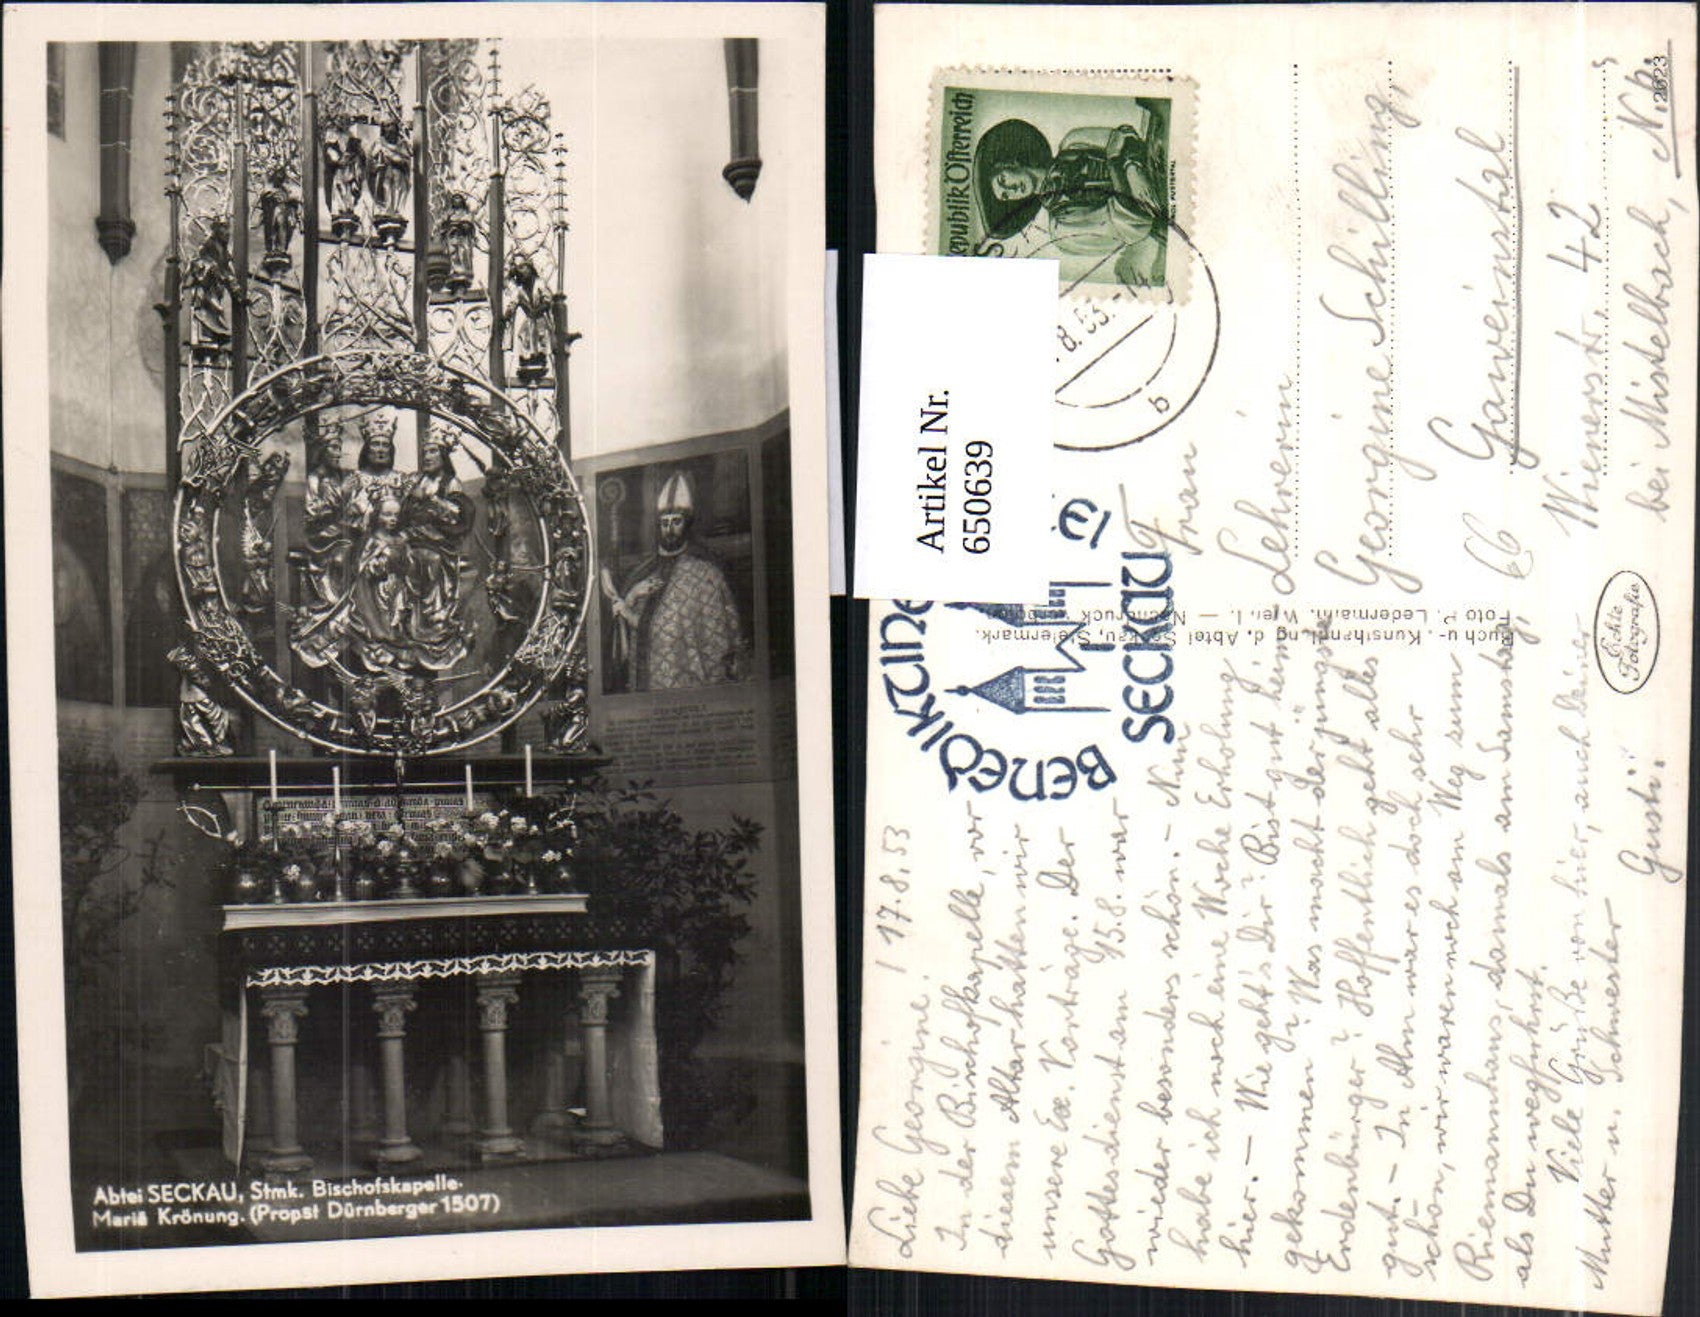 Abtei SECKAU, Stmk. Bischofskapelle.
Mariä Krönung. (Propst Dürnberger 1507)
Artikel Nr.
650639
Republik Österreich
8.53.
b
BENEDIKTINE
SECKAU
Buch u.- Kunsthandlng d. Abtei Seckau, Steiermark.
Foto P. Ledermann, Wien I. — Nachdruck
Echte
Fotografie
12623
Liebe Georgine! 17.8.53
In der Bischofkapelle, vor
diesem Altar hatten wir
unsere Ex. Vorträge. Der
Gottesdienst am 15.8. war
wieder besonders schön. - Nun
habe ich noch eine Woche Erholung
hier. - Wie geht's Dir? Bist gut heim
gekommen? Was macht der jüngste
Erdenbürger? Hoffentlich geht alles
gut. - In Alm war es doch sehr
schön, wir waren noch am Weg zum
Riemannhaus, damals am Samstag,
als Du wegfuhrst.
Viele Grüße von hier, auch Deiner
Mutter u. Schwester
Gusti.
Frau
Lehrerin
Georgine Schilling,
Gaweinstal
66 Wienerstr. 42
bei Mistelbach, N.Ö.